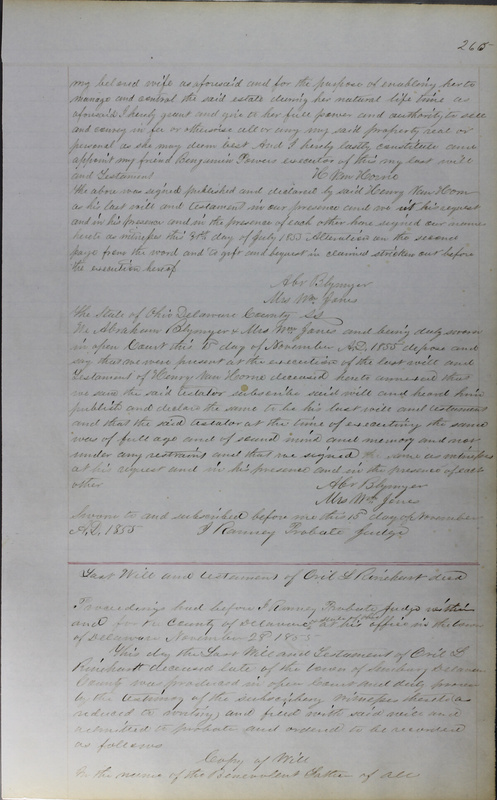 265
my beloved wife as aforesaid and for the purpose of enabling her to
manage and control the said estate during her natural life time as
aforesaid I hereby grant and give to her full power and authority to sell
and convey in fee or otherwise all or any my said property real or
personal as she may deem best And I hereby lastly constitute and
appoint my friend Benjamin Powers executor of this my last will
and Testament H Van Horne
The above was signed published and declared by said Henry Van Horn
as his last will and testament in our presence and we at his request
and in his presence and in the presence of each other have signed our names
hereto as witnesses this 30th day of July 1855 Attention on the second
page from the word and "a gift and bequest in" erased stricken out before
the execution hereof
Abr Blymyer
Mrs Wm Janes
The State of Ohio Delaware County SS
We Abraham Blymyer & Mrs Wm Janes and being duly sworn
in open Court this 15 day of November A.D. 1855 depose and
say that we were present at the execution of the last will and
Testament of Henry Van Horne deceased hereto annexed that
we saw the said testator subscribe said will and heard him
publish and declare the same to be his last will and testament
and that the said testator at the time of executing the same
was of full age and of sound mind and memory and not
under any restraint and that we signed the same as witnesses
at his request and in his presence and in the presence of each
other Abr Blymyer
Mrs Wm Janes
Sworn to and subscribed before me this 15th day of November
A.D. 1855 I Ranney Probate Judge
Last Will and testament of Oril L Rinehart decd
Proceedings had before I Ranney Probate Judge within
and for the County of Delaware at his office in the town
of Delaware November 28th 1855
This day the Last Will and Testament of Oril L
Rinehart deceased late of the town of Sunbury Delaware
County was produced in open Court and duly proven
by the testimony of the subscribing witnesses thereto
reduced to writing and filed with said will and
admitted to probate and ordered to be recorded
as follows
Copy of Will
In the name of the Benevolent Father of all